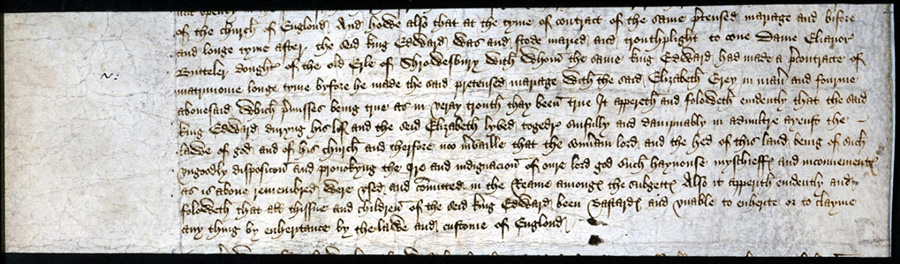 of the church of Englond And howe also that at the tyme of contract of the same p'tensed mariage and bifore
and longe tyme after the seid king Edward was and stode maried and trouthplight to oone Dame Elianor
Butteler doughter of the old Erle of Shrowesbury with whom the same king Edward had made a p'contracte of
matrimonie longe tyme bifore he made the said pretensed mariage with the said Elizabeth Grey in man' and fourme
abovesaid Which p'misses being true as in veray trouth thay been true It appereth and foloweth evidently that the said
king Edward duryng his lif and the seid Elizabeth lyved togedre sinfully and dampnably in adultre ayenst the
lawe of god and of his church And therfore noo mervaille that the sov'ain lord and the hed of this land being of such
ungoodly disposicon and provokyng the yre and indignacion of oure lord god such haynouse myscheffs and inconvenients
as is above remembred were used and comitted in the Reame amongs the subgetts Also it apperith evidently and
foloweth that all thissue and children of the seid king Edward been Bastards and unable to enherite or to clayme
any thing by enheritance by the lawe and custome of Englond